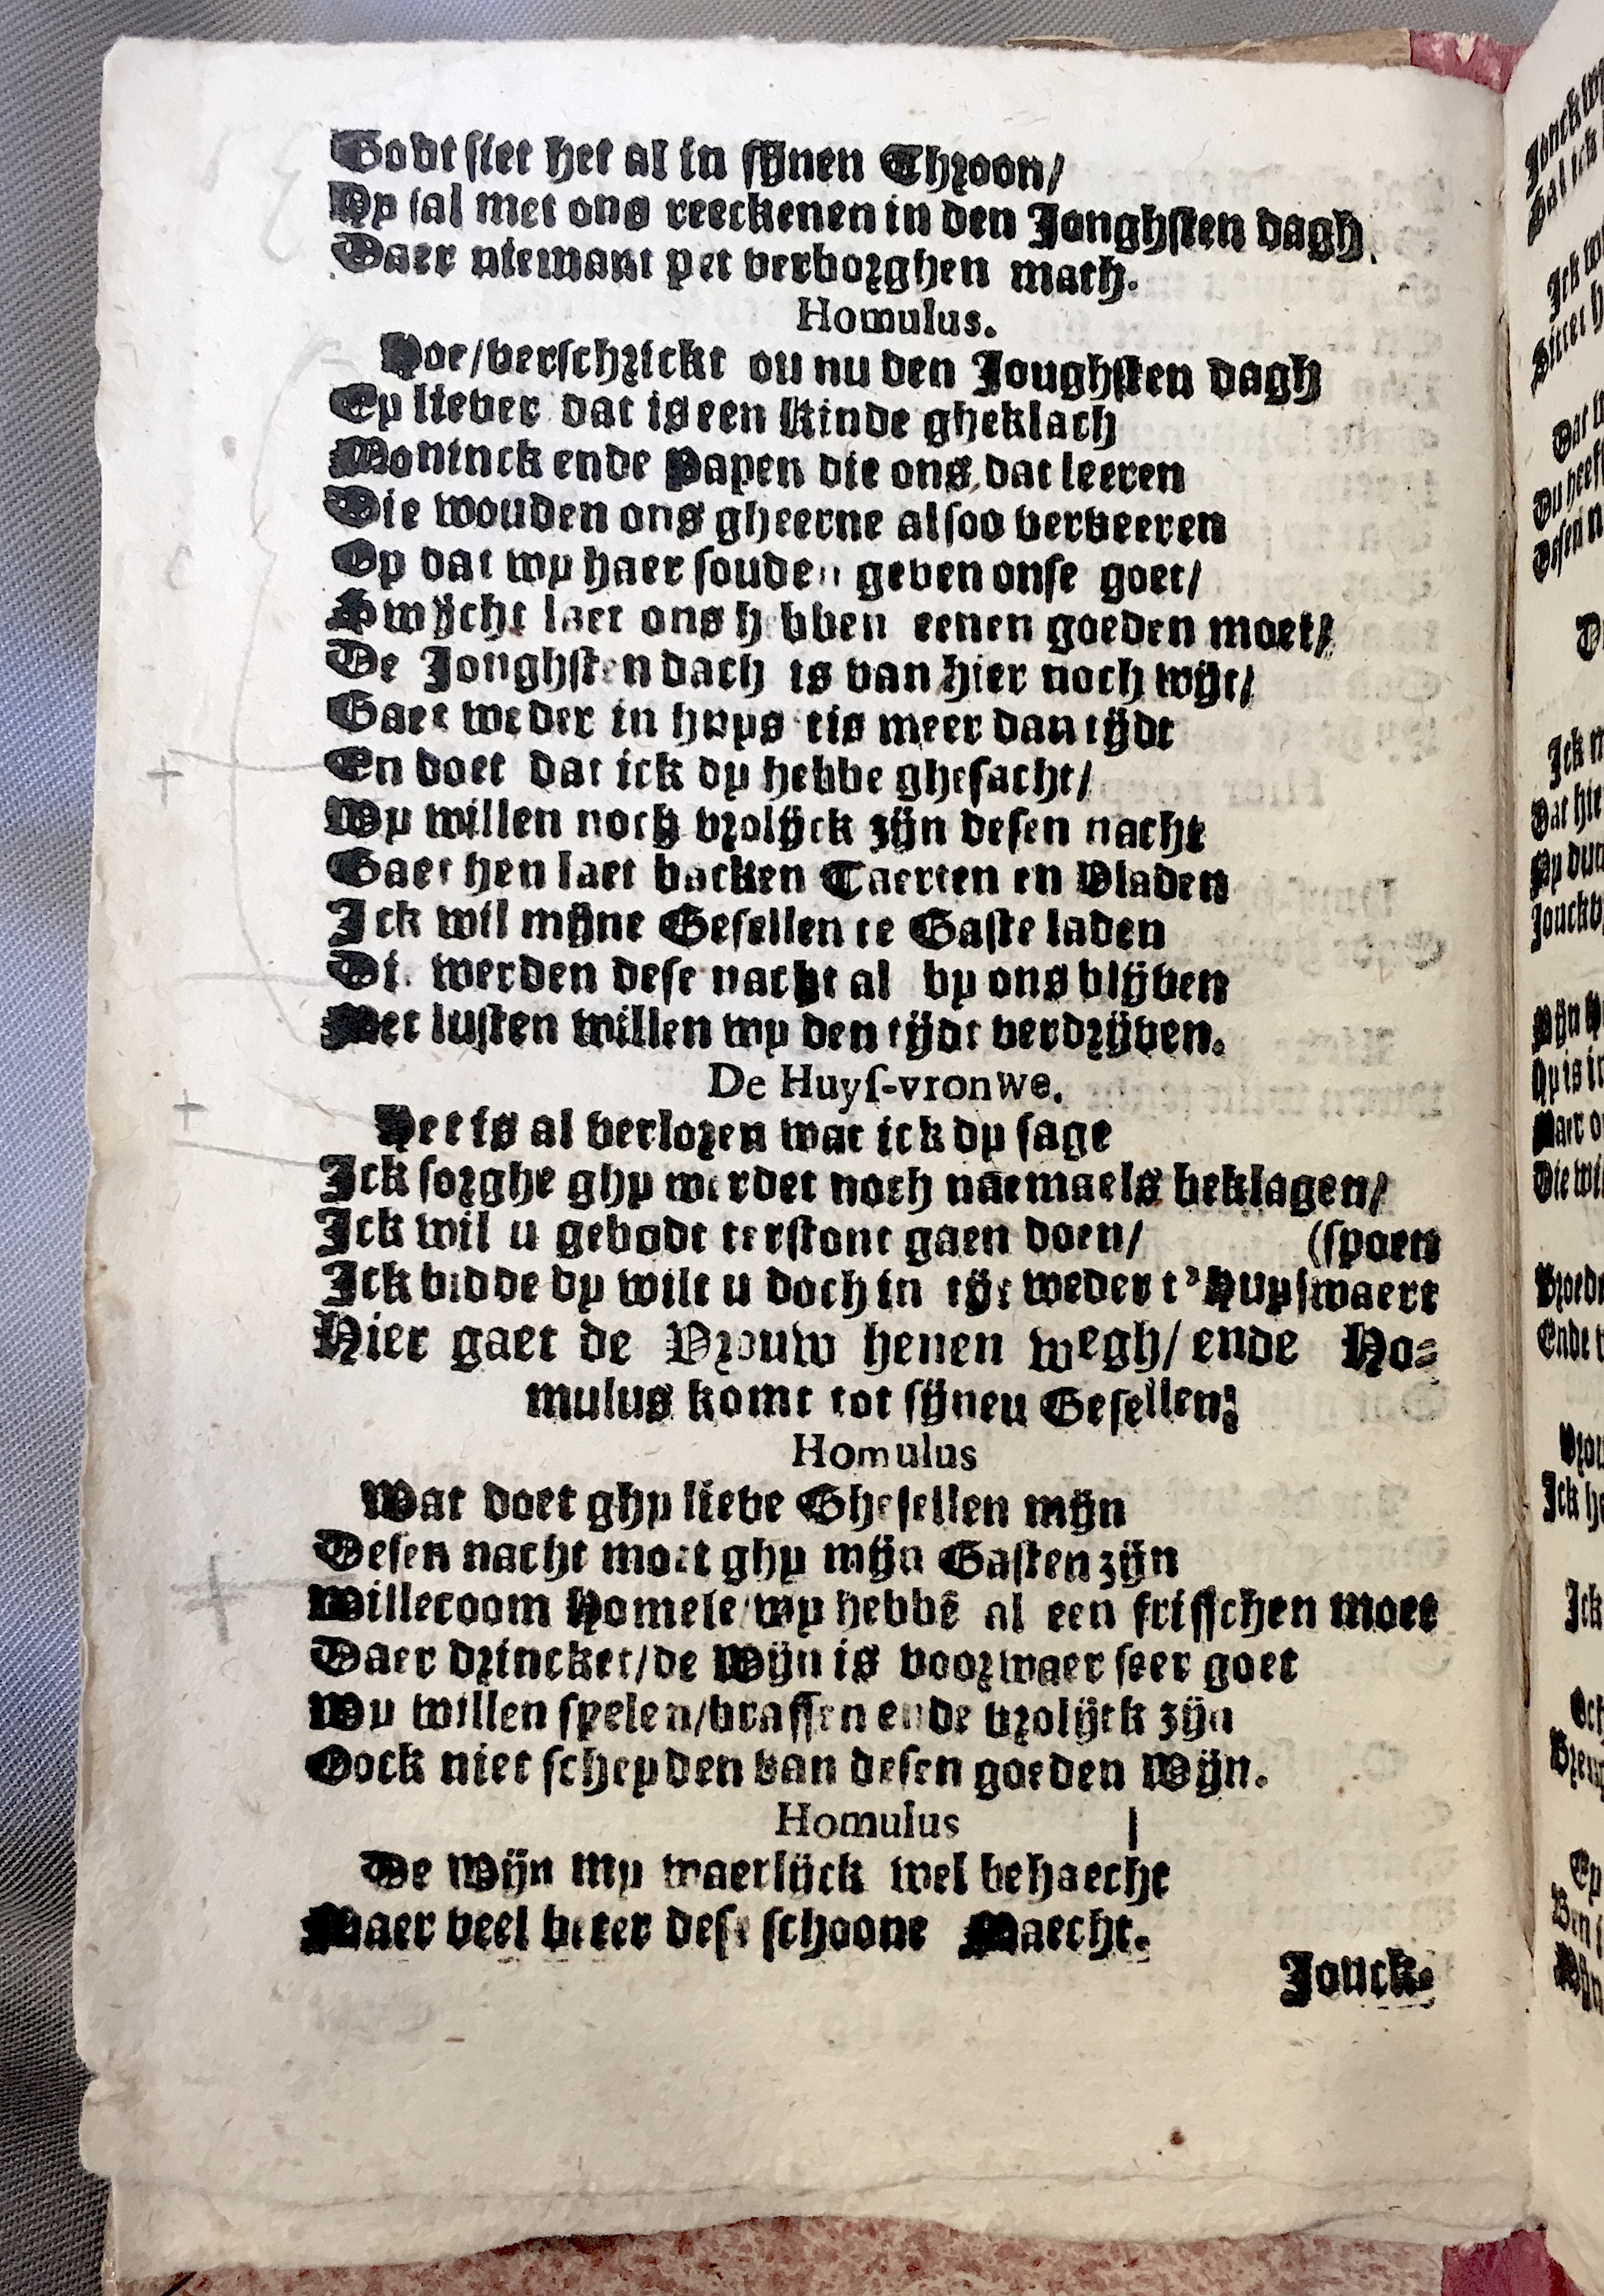 Godt siet het al in sijnen Throon/
Hy sal met ons reeckenen in den Jonghsten dagh,
Daer niemant yet verborghen mach.
Homulus.
Hoe/verschrickt ou nu den Joughsten dagh
Ey liever dat is een Kinde gheklach
Moninck ende Papen die ons dat leeren
Die wouden ons gheerne alsoo verveeren
Op dat wy haer souden geven onse goet/
Swijcht laet ons hebben eenen goeden moet/
De Jonghsten dach is van hier noch wijt/
Gaet weder in huys tis meer dan tijdt
En doet dat ick dy hebbe ghesacht/
Wy willen noch vrolijck zijn desen nacht
Gaet hen laet backen Taerten en Vladen
Ick wil mijne Gesellen te Gaste laden
Di. werden dese nacht al by ons blijven
Met lusten willen wy den tijdt verdrijven.
De Huyſ-vronwe.
Het is al verloren wat ick dy sage
Ick sorghe ghy werdet noch naemaels beklagen/
Ick wil u gebodt terstont gaen doen/ (spoen
Ick bidde dy wilt u doch in tijt weder t'Huyswaert
Hier gaet de Vrouw henen wegh/ ende Ho-
mulus komt tot sijneu Gesellen:
Homulus
Wat doet ghy lieve Ghesellen mijn
Desen nacht moet ghy mijn Gasten zijn
Willecoom Homele/wy hebbē al een frisschen moet
Daer drincket/de Wijn is voorwaer seer goet
Wy willen spelen/brassen ende vrolijck zijn
Oock niet scheyden van desen goeden Wijn.
Homulus
De Wijn my waerlijck wel behaecht
Maer veel beter dese schoone Maecht.
Jouck-